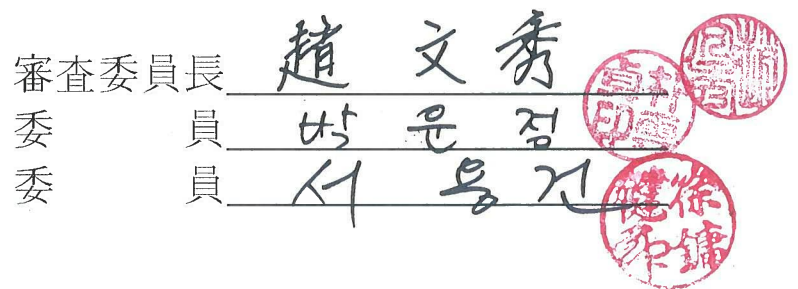 審査委員長 趙文秀
委員 박윤점
委員 서용건
徐鏞健印